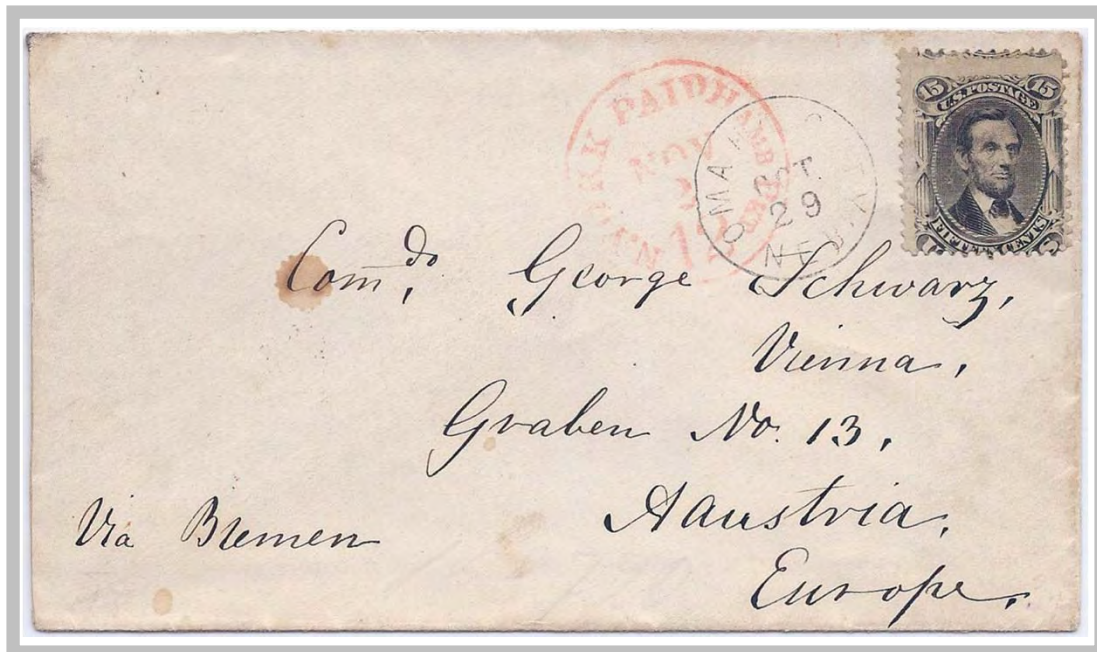 15 15
U.S. POSTAGE
FIFTEEN CENTS
N. YORK PAID HAMB PKT
NOV
12
OMAHA CITY
OCT.
29
NEB
Com, do George Schwarz,
Vienna,
Graben No. 13,
Aaustria,
Europe.
Via Bremen